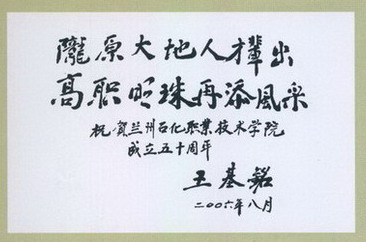 隴原大地人才輩出
高职明珠再添風采
祝賀兰州石化职業技术学院
成立五十周年
王基銘
二〇〇六年八月